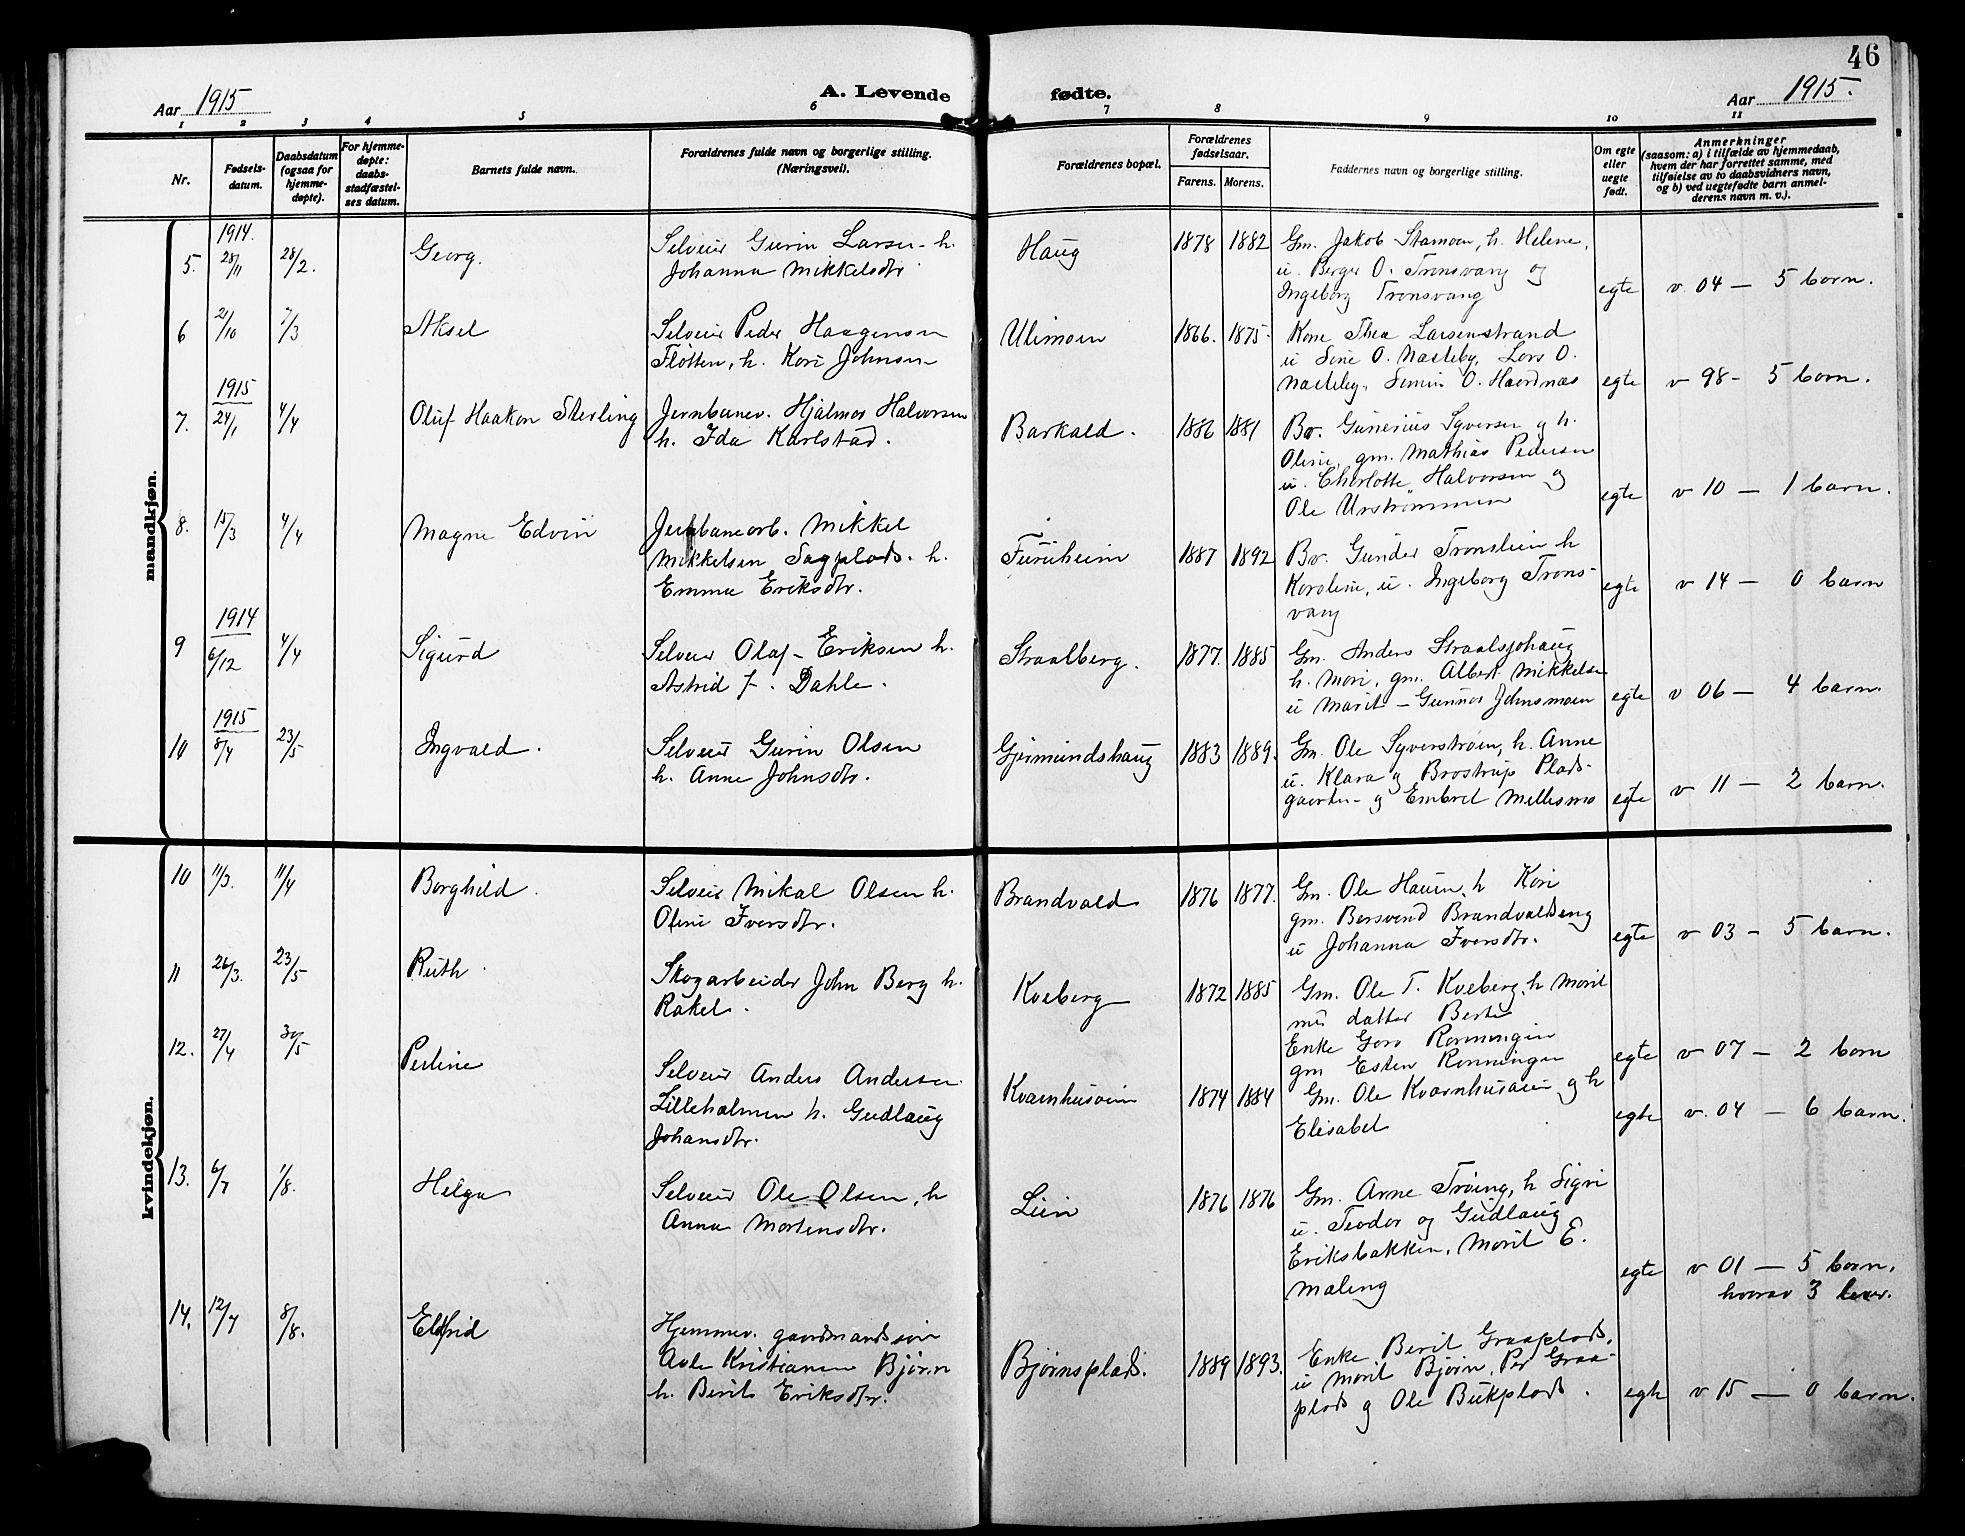 46
Aar 1915 A. Levende fødte. Aar 1915.
1 2 3 4 5 6 7 8 9 10 11
Nr.
Fødsels-
datum.
Daabsdatum
(ogsaa for
hjemme-
døpte).
For hjemme-
døpte:
daabs-
stadfæstel-
ses datum.
Barnets fulde navn.
Forældrenes fulde navn og borgerlige stilling.
(Næringsvei).
Forældrenes bopæl.
Forældrenes
fødselsaar.
Farens. Morens.
Faddernes navn og borgerlige stilling.
Om egte
eller
uegte
født.
Anmerkninger
(saasom: a) i tilfælde av hjemmedaab,
hvem der har forrettet samme, med
tilføielse av to daabsvidners navn,
og b) ved uegtefødte barn anmel-
derens navn m. v.).
mandkjøn.
1914.
5. 28/11 28/2. Georg.
Selveier Gurin Larsen h.
Johanna Mikkelsdtr.
Haug 1878 1882
Gm. Jakob Stamoen, h. Helene,
u. Berger O. Tronsvang og
Ingeborg Tronsvang
egte v. 04 — 5 barn.
6 21/10 7/3 Aksel
Selveier Peder Haagensen
Fløtten, h. Kari Johnsen
Ulimoen 1866. 1875.
Kone Thea Larsenstrand
u Sine O. Nasteby, Lars O.
Nasteby, Simen O. Haardnas
egte v 98 - 5 barn.
1915
7. 24/1 4/4 Oluf Haakon Sterling
Jernbanev. Hjalmar Halvorsen
h. Ida Karlstad.
Barkald. 1886 1881
Br. Gunerius Syversen og h.
Oline, gm. Mathias Pedersen
u. Charlotte Halvorsen og
Ole Urstrømmen
egte v 10 — 1 barn.
8. 15/3 4/4 Magne Edvin
Jernbanearb. Mikkel
Mikkelsen Sagplads. h.
Emma Eriksdtr.
Furuheim 1887 1892
Br. Gunder Tronslien h
Karoline, u. Ingeborg Trons-
vang
egte v 14 — 0 barn
1914
9 6/12 4/4 Sigurd
Selveier Olaf Eriksen h.
Astrid f. Dahle.
Straalberg. 1877. 1885
Gm. Anders Straalsjohaug
h. Mari, gm. Albert Mikkelsen
u Marit — Gunnar Johnsmoen
egte v 06 — 4 barn.
1915
10 8/4 23/5 Ingvald.
Selveier Gurin Olsen
h. Anne Johnsdtr.
Gjermundshaug 1883 1889.
Gm. Ole Syverstrøen, h. Anne
u. Klara og Brostrup Plads-
gaarden og Embret Mellesmo
egte v 11 — 2 barn.
kvindekjøn.
10 11/3. 11/4 Borghild.
Selveier Mikal Olsen h.
Oline Iversdtr.
Brandvald 1876 1877.
Gm. Ole Hauen, h Kari
gm. Bersvend Brandvaldseng
u Johanna Iversdtr.
egte v 03 - 5 barn.
11 26/3. 23/5 Ruth.
Skogarbeider John Berg h.
Rakel.
Kveberg 1872 1885
Gm. Ole T. Kveberg, h Marit
med datter Berte
Enke Goro Rønningen
gm Esten Rønningen
egte v 07 — 2 barn
12. 27/4 30/5 Perline
Selveier Anders Andersen
Lilleholmen h. Gudlaug
Johansdtr.
Kvernhusveien 1874 1884
Gm. Ole Kvarnhusveien og h
Elisabet
egte v. 04 — 6 barn.
13. 6/7 1/8. Helga
Selveier Ole Olsen, h
Anna Mortensdtr.
Lien 1876 1876
Gm. Arne Trøeng, h Sigri
u. Teodor og Gudlaug
Eriksbakken, Marit E.
Maleng
egte v 01 — 5 barn,
hvorav 3 lever.
14. 12/7 8/8. Eldfrid
Hjemmev. gaardmandssøn
Avle Kristiansen Bjørn
h. Berit Eriksdtr.
Bjørnsplads. 1889 1893.
Enke Berit Graaplads,
u Marit Bjørn, Per Graa-
plads og Ole Bukplads.
egte v 15 — 0 barn.